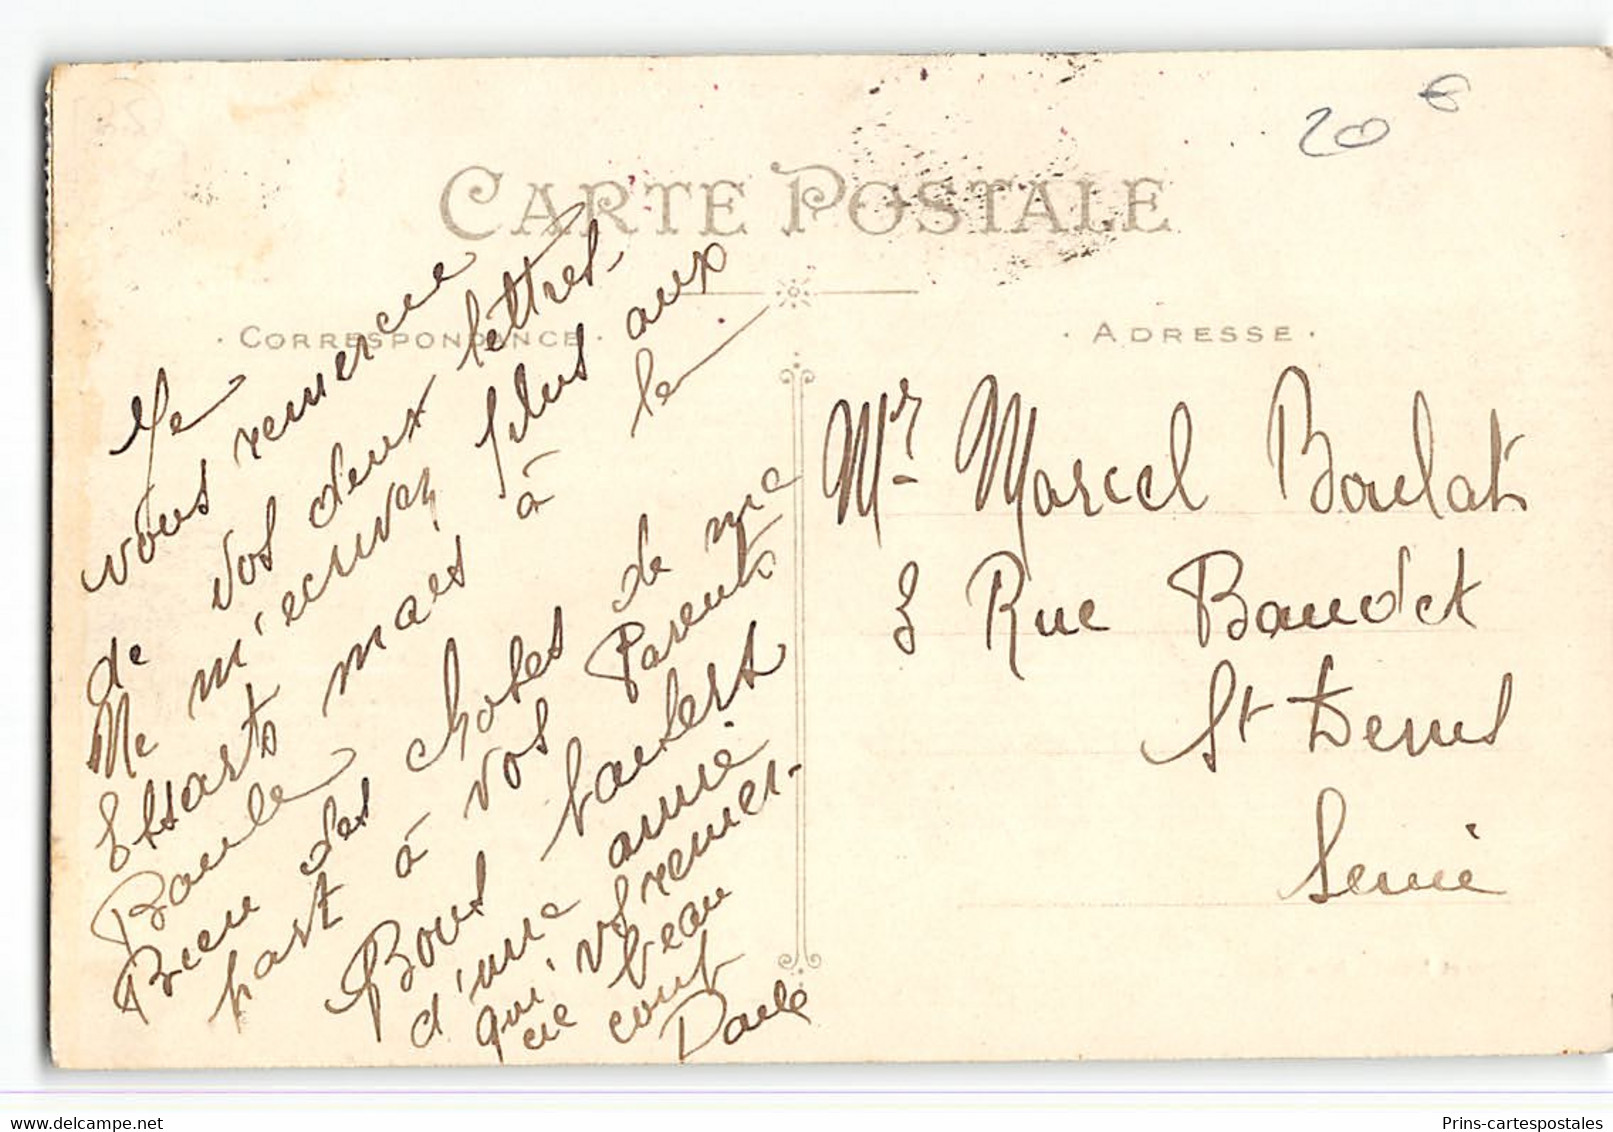 20 €
CARTE POSTALE
· CORRESPONDANCE ·
· ADRESSE ·
Je
vous remercie
de vos deux lettres.
Ne m'ecrivez plus aux
Essarts mais à la
Baule
Bien des choses de me
part à vos Parents
Bons baisers
d'une amie
qui vs remer-
cie beau
coup
Mr Marcel Boulat
3 Rue Baudet
St Denis
Seine
delcampe.net
Prins-cartespostales